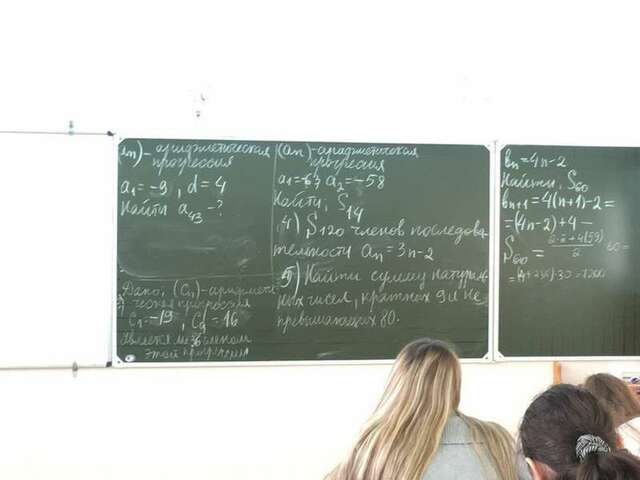 (an) - арифметическая
прогрессия
a1 = -9, d = 4
Найти a43 - ?
Дано, (Cn) - арифмети
ческая прогрессия
C1 = -19, C9 = 16
является ли членом
этой прогрессии
(an) - арифметическая
прогрессия
a1 = -64 a2 = -58
Найти; S14
4) S120 членов последова
тельности an = 3n-2
5) Найти сумму натураль
ных чисел, кратных 9 и не
превышающих 80.
bn = 4n-2
Найти; S60
bn+1 = 4(n+1)-2 =
= (4n-2)+4 -
S60 =
60 =